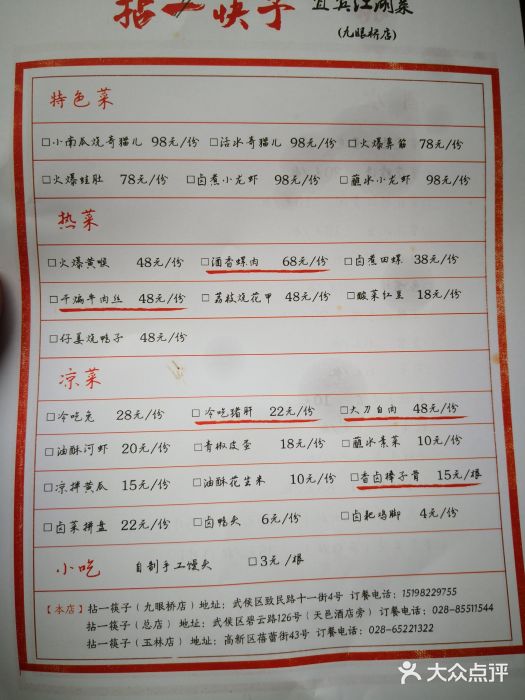 拈一筷子 宜宾江湖菜
(九眼桥店)
特色菜
□小南瓜烧哥猫儿 98元/份 □活水哥猫儿 98元/份 □火爆鼻筋 78元/份
□火爆蛙肚 78元/份 □卤煮小龙虾 98元/份 □蘸水小龙虾 98元/份
热菜
□火爆黄喉 48元/份 □酒香螺肉 68元/份 □卤煮田螺 38元/份
□干煸牛肉丝 48元/份 □荔枝烧花甲 48元/份 □酸菜红豆 18元/份
□仔姜烧鸭子 48元/份
凉菜
□冷吃兔 28元/份 □冷吃猪肝 22元/份 □大刀白肉 48元/份
□油酥河虾 20元/份 □青椒皮蛋 18元/份 □蘸水素菜 10元/份
□凉拌黄瓜 15元/份 □油酥花生米 10元/份 □香卤棒子骨 15元/根
□卤菜拼盘 22元/份 □卤鸭头 6元/份 □卤粑鸡脚 4元/份
小吃 自制手工馒头 □3元/根
【本店】拈一筷子(九眼桥店)地址:武侯区致民路十一街4号 订餐电话:15198229755
拈一筷子(总店)地址:武侯区碧云路126号(天邑酒店旁)订餐电话:028-85511544
拈一筷子(玉林店)地址:高新区蓓蕾街43号 订餐电话:028-65221322
大众点评